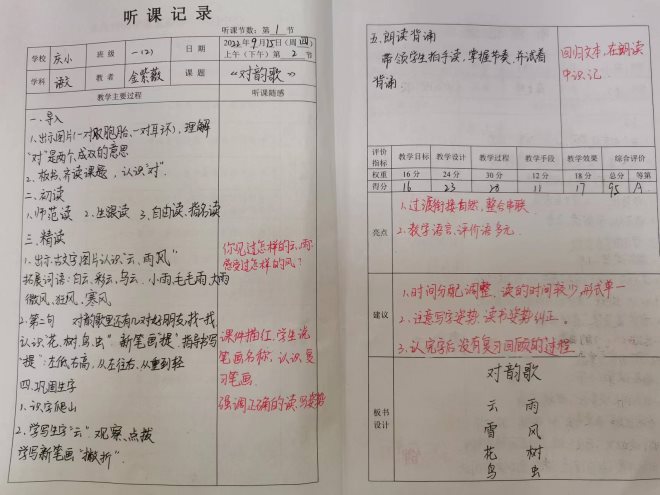 听课记录
听课节数：第1节
学校 庆小 班级 一(2) 日期 2022年9月15日(周四)
上午(下午)第2节
学科 语文 教者 金紫薇 课题 《对韵歌》
教学主要过程 听课随感
一.导入
1.出示图片(一对双胞胎、一对耳环),理解
"对"是两个,成双的意思
2.板书,齐读课题,认识"对".
二.初读
1.师范读 2.生跟读 3.自由读、指名读
三.精读
1.出示古文字图片认识"云、雨风"
你见过怎样的云,雨?
感受过怎样的风?
拓展词语:白云.彩云.乌云.小雨.毛毛雨.大雨
微风、狂风、寒风.
2.第二句 对韵歌里还有几对好朋友,找一找,
认识"花、树、鸟、虫"新笔画"提".指导书写
"提":左低右高,从左往右,从重到轻
课件描红,学生说
笔画名称,认识复
习笔画.
四.巩固生字
1.识字爬山
强调正确的读、写姿势
2.学写生字"云".观察、点拨
学写新笔画"撇折".
五.朗读背诵
带领学生拍手读,掌握节奏,并试着
背诵
回归文本,在朗读
中识记.
评价指标 教学目标 教学设计 教学过程 教学手段 教学效果 综合评价
权重 16分 24分 30分 12分 18分 总分 等第
得分 16 23 28 11 17 95 A
亮点
1.过渡衔接自然,整合串联.
2.教学语言、评价语多元.
建议
1.时间分配调整,读的时间较少,形式单一
2.注意写字姿势,读书姿势纠正。
3.认完字后没有复习回顾的过程
板书设计
对韵歌
云 雨
雪 风
花 树
鸟 虫